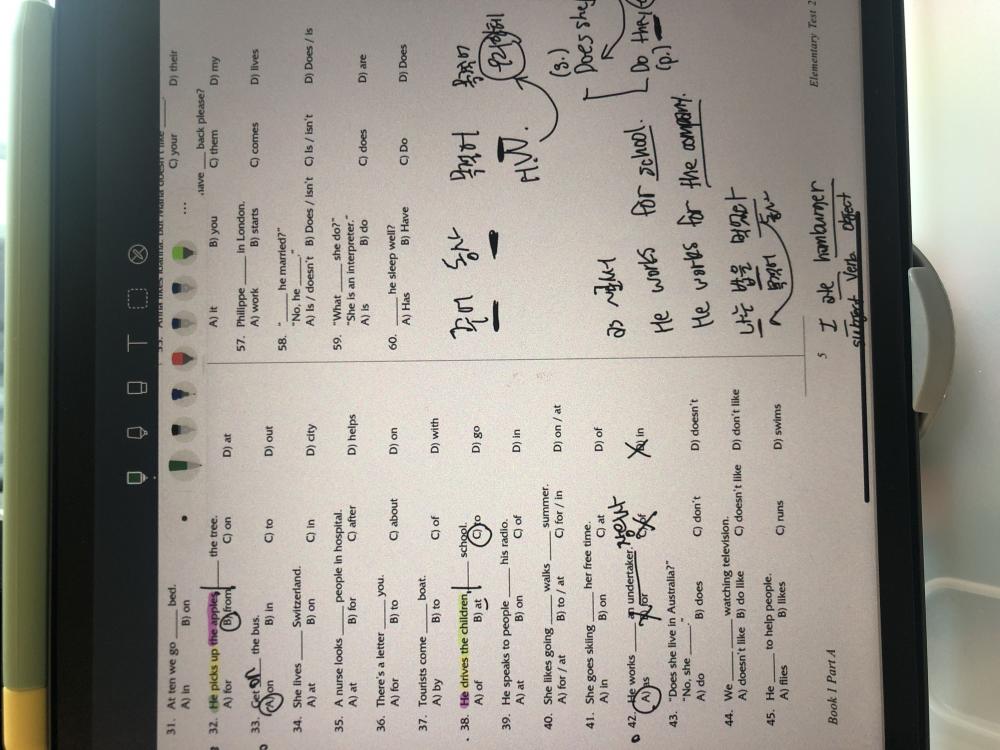 31. At ten we go ____ bed.
A) in B) on C) to D) at
32. He picks up the apples ____ the tree.
A) for B) from C) on D) at
33. Get on the bus.
A) on B) in C) to D) out
34. She lives ____ Switzerland.
A) at B) on C) in D) city
35. A nurse looks ____ people in hospital.
A) at B) for C) after D) helps
36. There's a letter ____ you.
A) for B) to C) about D) on
37. Tourists come ____ boat.
A) by B) to C) of D) with
38. He drives the children ____ school.
A) of B) at C) to D) go
39. He speaks to people ____ his radio.
A) at B) on C) of D) in
40. She likes going ____ walks ____ summer.
A) for / at B) to / at C) for / in D) on / at
41. She goes skiing ____ her free time.
A) in B) on C) at D) of
42. He works ____ an undertaker.
A) as B) for C) of D) in
43. "Does she live in Australia?"
"No, she ____."
A) do B) does C) don't D) doesn't
44. We ____ watching television.
A) doesn't like B) do like C) doesn't like D) don't like
45. He ____ to help people.
A) flies B) likes C) runs D) swims
Book 1 Part A
C) your D) their
have ____ back please?
A) it B) you C) them D) my
57. Philippe ____ in London.
A) work B) starts C) comes D) lives
58. "____ he married?"
"No, he ____."
A) Is / doesn't B) Does / isn't C) Is / isn't D) Does / is
59. "What ____ she do?"
"She is an interpreter."
A) is B) do C) does D) are
60. ____ he sleep well?
A) Has B) Have C) Do D) Does
주어 동사 목적어
as 로서
He works for school.
He works for the company.
나는 밥을 먹었다
목적어 동사
I ate hamburner
subject Verb object
(s.)
Does she
Do they
(p.)
5
Elementary Test 2